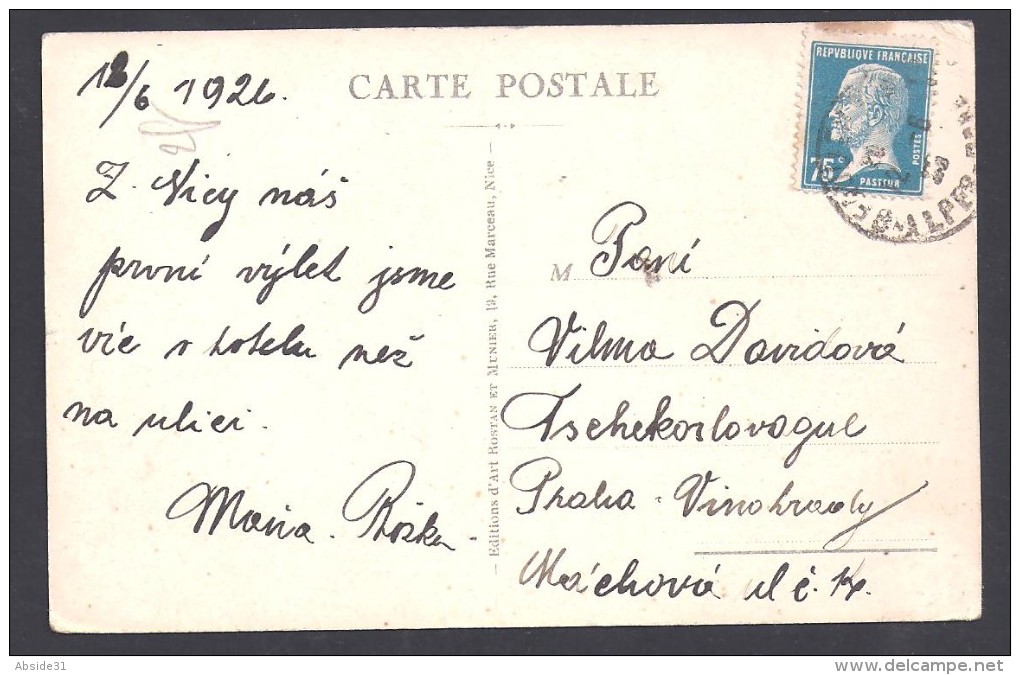 12/6 1926.
CARTE POSTALE
REPVBLIQVE FRANÇAISE
75c
POSTES
PASTEUR
ALPES
Z Nicy náš
první výlet jsme
víc v hotelu než
na ulici.
Maria.
— Editions d'Art ROSTAN ET MUNIER, 13, Rue Marceau, Nice —
M
Paní
Vilma Davidová
Tschekoslovaque
Praha - Vinohrady
Máchová ul č. 14.
Abside31
delcampe.net